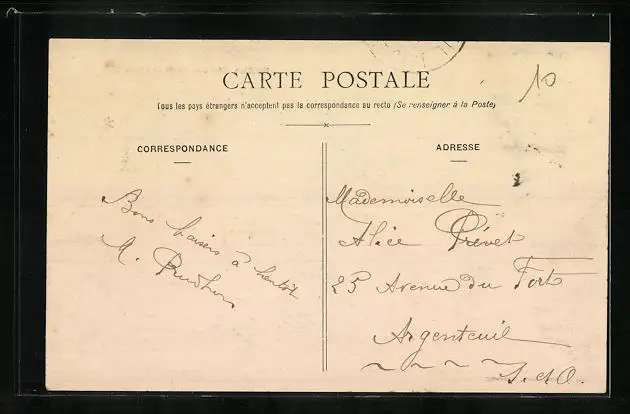 10
CARTE POSTALE
Tous les pays étrangers n'acceptent pas la correspondance au recto (Se renseigner à la Poste)
CORRESPONDANCE
ADRESSE
Bons baisers à bientôt
M.
Mademoiselle
Alice Prévet
25 Avenue du Fort
Argenteuil
S. & O.